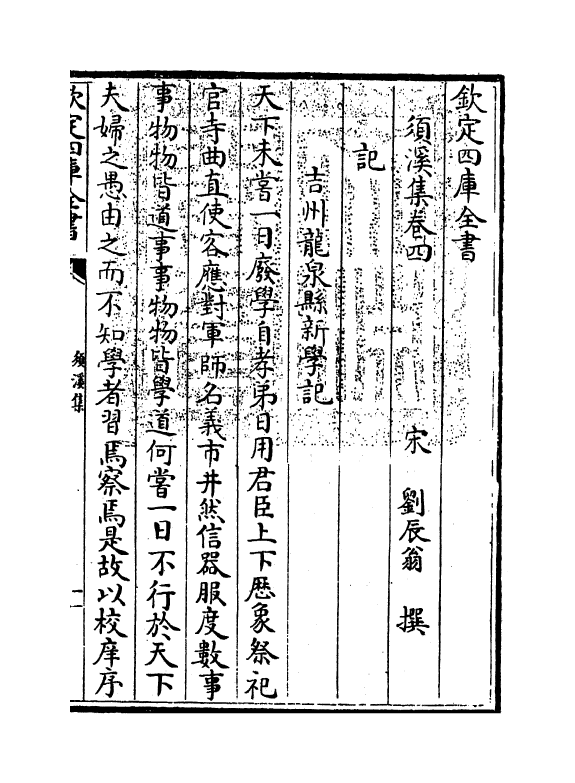 欽定四庫全書
須溪集卷四
宋 劉辰翁 撰
記
吉州龍泉縣新學記
天下未嘗一日廢學自孝弟日用君臣上下厯象祭祀
官寺曲直使客應對軍師名義市井然信器服度數事
事物物皆道事事物物皆學道何嘗一日不行於天下
夫婦之愚由之而不知學者習焉察焉是故以校庠序
欽定四庫全書
須溪集